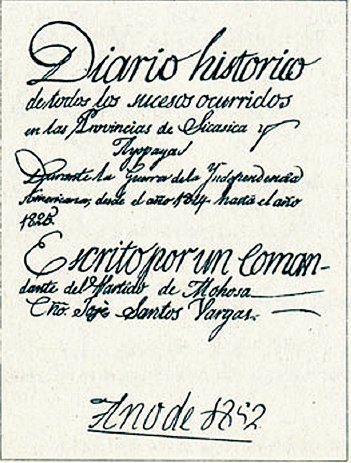 Diario historico
de todos los sucesos ocurridos
en las Provincias de Sicasica y
Ayopaya
Durante la Guerra de la Yndependencia
Americana, desde el año 1814 hasta el año
1825.
Escrito por un Coman-
dante del Partido de Mohosa
Cño. José Santos Vargas.
Año de 1852